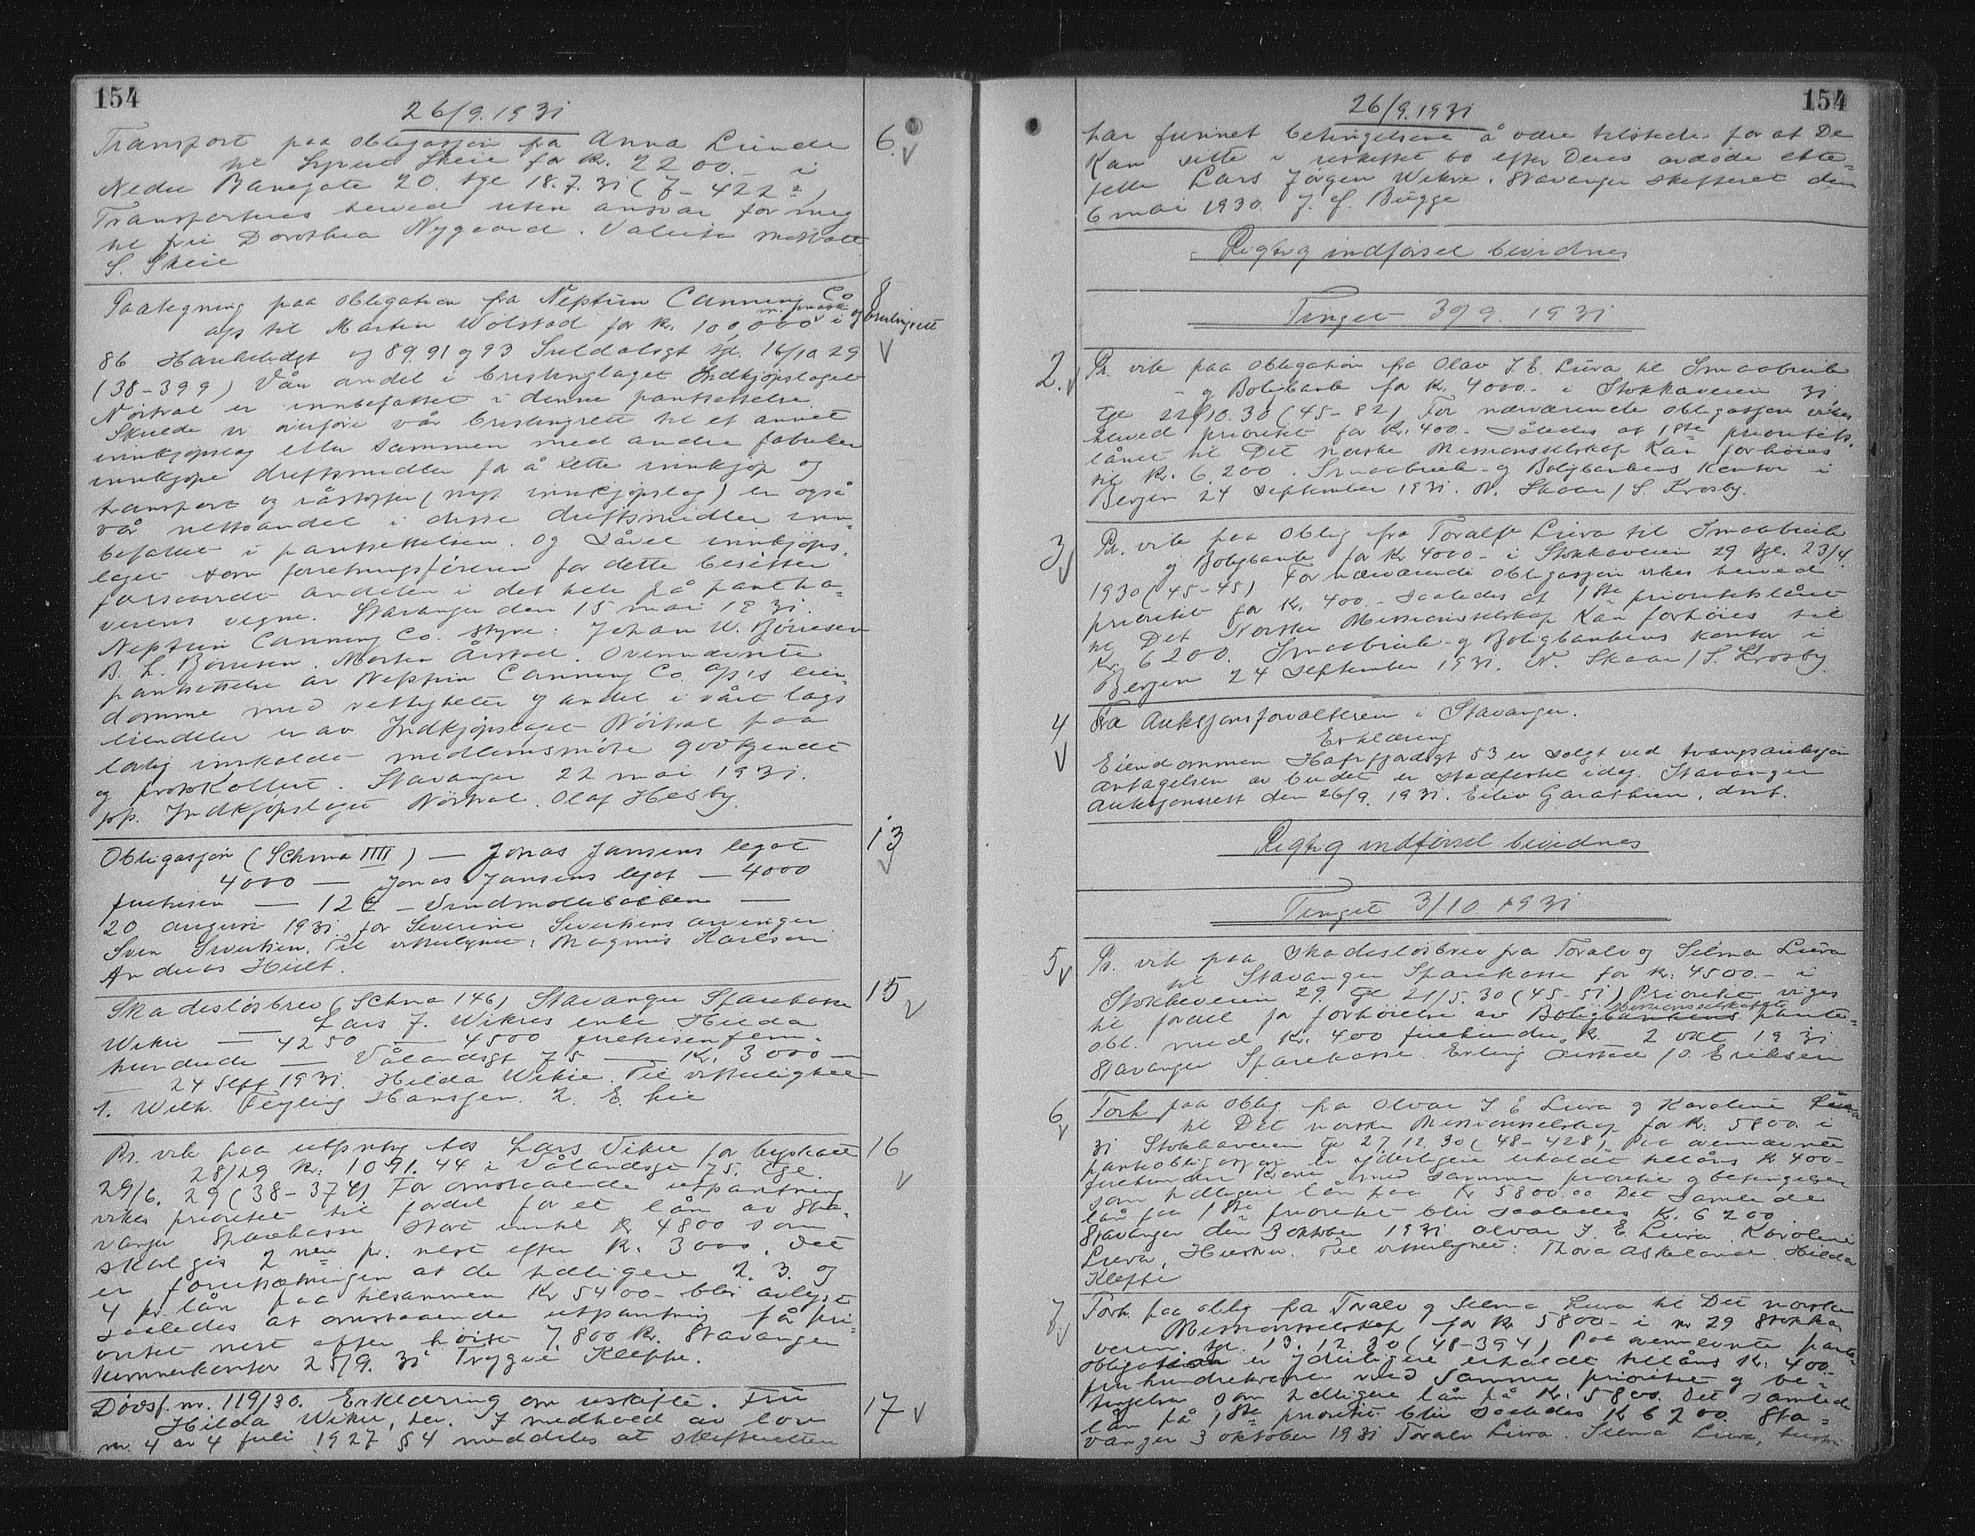 154
26/9.1931
Transport paa obligasjon fra Anna Lunde
til Sigurd Skeie for kr. 2200.- i
Nedre Banegate 20. tgl 18.7.31 (7-422)
Transporteres herved uten ansvar for meg
til fru Dorothea Nygaard. Valuta mottatt
S. Skeie
6.
Paategning paa obligation fra Neptun Canning Co
a/s til Morten Wolstad for kr. 100,000 i og brislingrett
86 Haukeligt og 89.91 og 93 Suldalsgt tgl. 16/10 29
(38-399) Vår andel i brislinglaget Indkjøpslaget
Nöstral er innbefattet i denne pantsettelse
Skulde vi overføre vår brislingrett til et annet
innkjøpslag eller sammen med andre fabrikker
innkjøpe driftsmidler for å lette innkjøp og
transport og råstoffer (nytt innkjøpslag) er også
vår nettoandel i disse driftsmidler inn-
befattet i pantsettelsen. Og såvel innkjøps-
laget som forretningsføreren for dette besitter
forsaavidt andelen i det hele på pantha-
verens vegne. Stavanger den 15 mai 1931.
Neptun Canning Co. styre: Johan W. Börresen
B. L. Börresen. Morten Årstad. Ovennevnte
pantsettelse av Neptun Canning Co a/s's eien-
domme med rettigheter og andel i vårt lags
eiendeler er av Indkjøpslaget Nöstral paa
lovlig innkaldt medlemsmöte godkjendt
og protokollert. Stavanger 22 mai 1931.
pp. Indkjøpslaget Nöstral. Olaf Hesby.
8
Obligasjon (Schma IIII) — Jonas Jansens legat
4000 — Jonas Jansens legat — 4000
firetusen — 126 — Vindmøllebakken —
20 august 1931 for Severine Sivertsens arvinger
Sven Sivertsen. Til vitterlighet: Magnus Karlsen
Andreas Hult.
13
Skadesløsbrev (Schma 146) Stavanger Sparekasse
— Lars J. Wikres enke Hilda
Wikre — 4250 — 4500 firetusenfem-
hundrede — Vålandsgt 75 — Kr. 3000 —
— 24 sept 1931. Hilda Wikre. Til vitterlighet
1. Wilh. Teyling Hanssen. 2. E. Lie
15
Pr. vik paa utpantg hos Lars Vikre for byskatt
28/29 Kr. 1091.44 i Vålandsgt 75. tgl.
29/6. 29 (38-374) For omstaaende utpantning
vikes prioritet til fordel for et lån av Sta-
vanger Sparekasse stort inntil Kr 4800 som
skal gis 2nen pr. nest efter Kr. 3000. Det
er forutsætningen at de tidligere 2. 3. og
4 pr lån paa tilsammen Kr 5400 - blir avlyst
saaledes at omstaaende utpantning få pri-
oritet nest efter höist 7.800 kr. Stavanger
kemnerkontor 25/9. 31 Trygve Kleppe.
16
Dödsf. nr. 119/30. Erklæring om uskifte. Fru
Hilda Wikre, her. I medhold av lov
nr 4 av 4 juli 1927 §4 meddeles at skifteretten
17
154
26/9.1931
har funnet betingelsene å være tilstede for at De
kan sitte i uskiftet bo efter Deres avdöde ekte-
felle Lars Jörgen Wikre. Stavanger skifterett den
6 mai 1930. J. J. Bugge
Rigtig indførsel bevidnes
Tinget 30/9. 1931
2. Pr. vik paa obligation fra Olav I. E. Lura til Smaabruk
- og Boligbank for Kr. 4000.- i Stokkaveien 31
tgl 22/10.30 (45-82) For nærværende obligasjon vikes
herved prioritet for kr. 400.- således at 1ste prioritets
lånet til Det norske Missionsselskap kan forhöies
til Kr. 6.200. Smaabruk- og Boligbankens kontor i
Bergen 24 september 1931. N. Skaar / S. Krosby.
3 Pr. vik paa oblig fra Toralf Lura til Smaabruk
og Boligbank for Kr 4000.- i Stokkaveien 29 tgl. 23/4.
1930 (45-45) For nærværende obligasjon vikes herved
prioritet for Kr. 400.- saaledes at 1ste prioritetslånet
til Det Norske Missionsselskap kan forhöies til
Kr. 6200. Smaabruk- og Boligbankens kontor i
Bergen 24 september 1931. N. Skaar / S. Krosby
4 Fra Auksjonsforvalteren i Stavanger.
Erklæring
Eiendommen Hafrsfjordsgt 53 er solgt ved tvangsauksjon
antagelsen av budet er stadfestet idag. Stavanger
auksjonsrett den 26/9. 1931. Eiliv Garathun, dmf.
Rigtig indførsel bevidnes
Tinget 3/10 1931
5 Pr. vik paa skadeslösbrev fra Toralv og Selma Lura
til Stavanger Sparekasse for kr. 4500.- i
Stokkaveien 29. tgl 21/5.30 (45-51) Prioritet viges
til fordel for forhöielse av Boligbankens Missionsselskapets pante-
obl. med kr. 400 firehundre kr. 2 okt 1931.
Stavanger Sparekasse. Erling Aarstad / O. Eriksen
6 Forh. paa oblig fra Olvar I E Lura og Karoline Lura
til Det norske Missionsselskap for kr. 5800.- i
31 Stokkaveien tgl 27.12.30 (48-428) Paa ovennævnte
pantobligasjon er yderligere erholdt tillåns Kr 400.-
firehundre kroner med samme prioritet og betingelser
som tidligere lån paa Kr 5800.00 Det samlede
lån paa 1ste prioritet blir saaledes Kr. 6200.
Stavanger den 3 oktober 1931 Olvar I. E. Lura. Karoline
Lura, Hustru. Til vitterlighet: Thora Askeland. Hilda
Kleppe
7. Forh. paa oblig fra Toralv og Selma Lura til Det norske
Missionsselskap for kr 5800.- i nr 29 Stokka
veien. tgl. 13.12.30 (48-394) Paa ovennevnte pante-
obligation er yderligere erholdt tillåns Kr. 400
firehundrekroner med samme prioritet og be-
tingelser som tidligere lån på Kr. 5800. Det samlede
lån på 1ste prioritet blir saaledes Kr 6200. Sta-
vanger 3 oktober 1931 Toralv Lura. Selma Lura, hustru